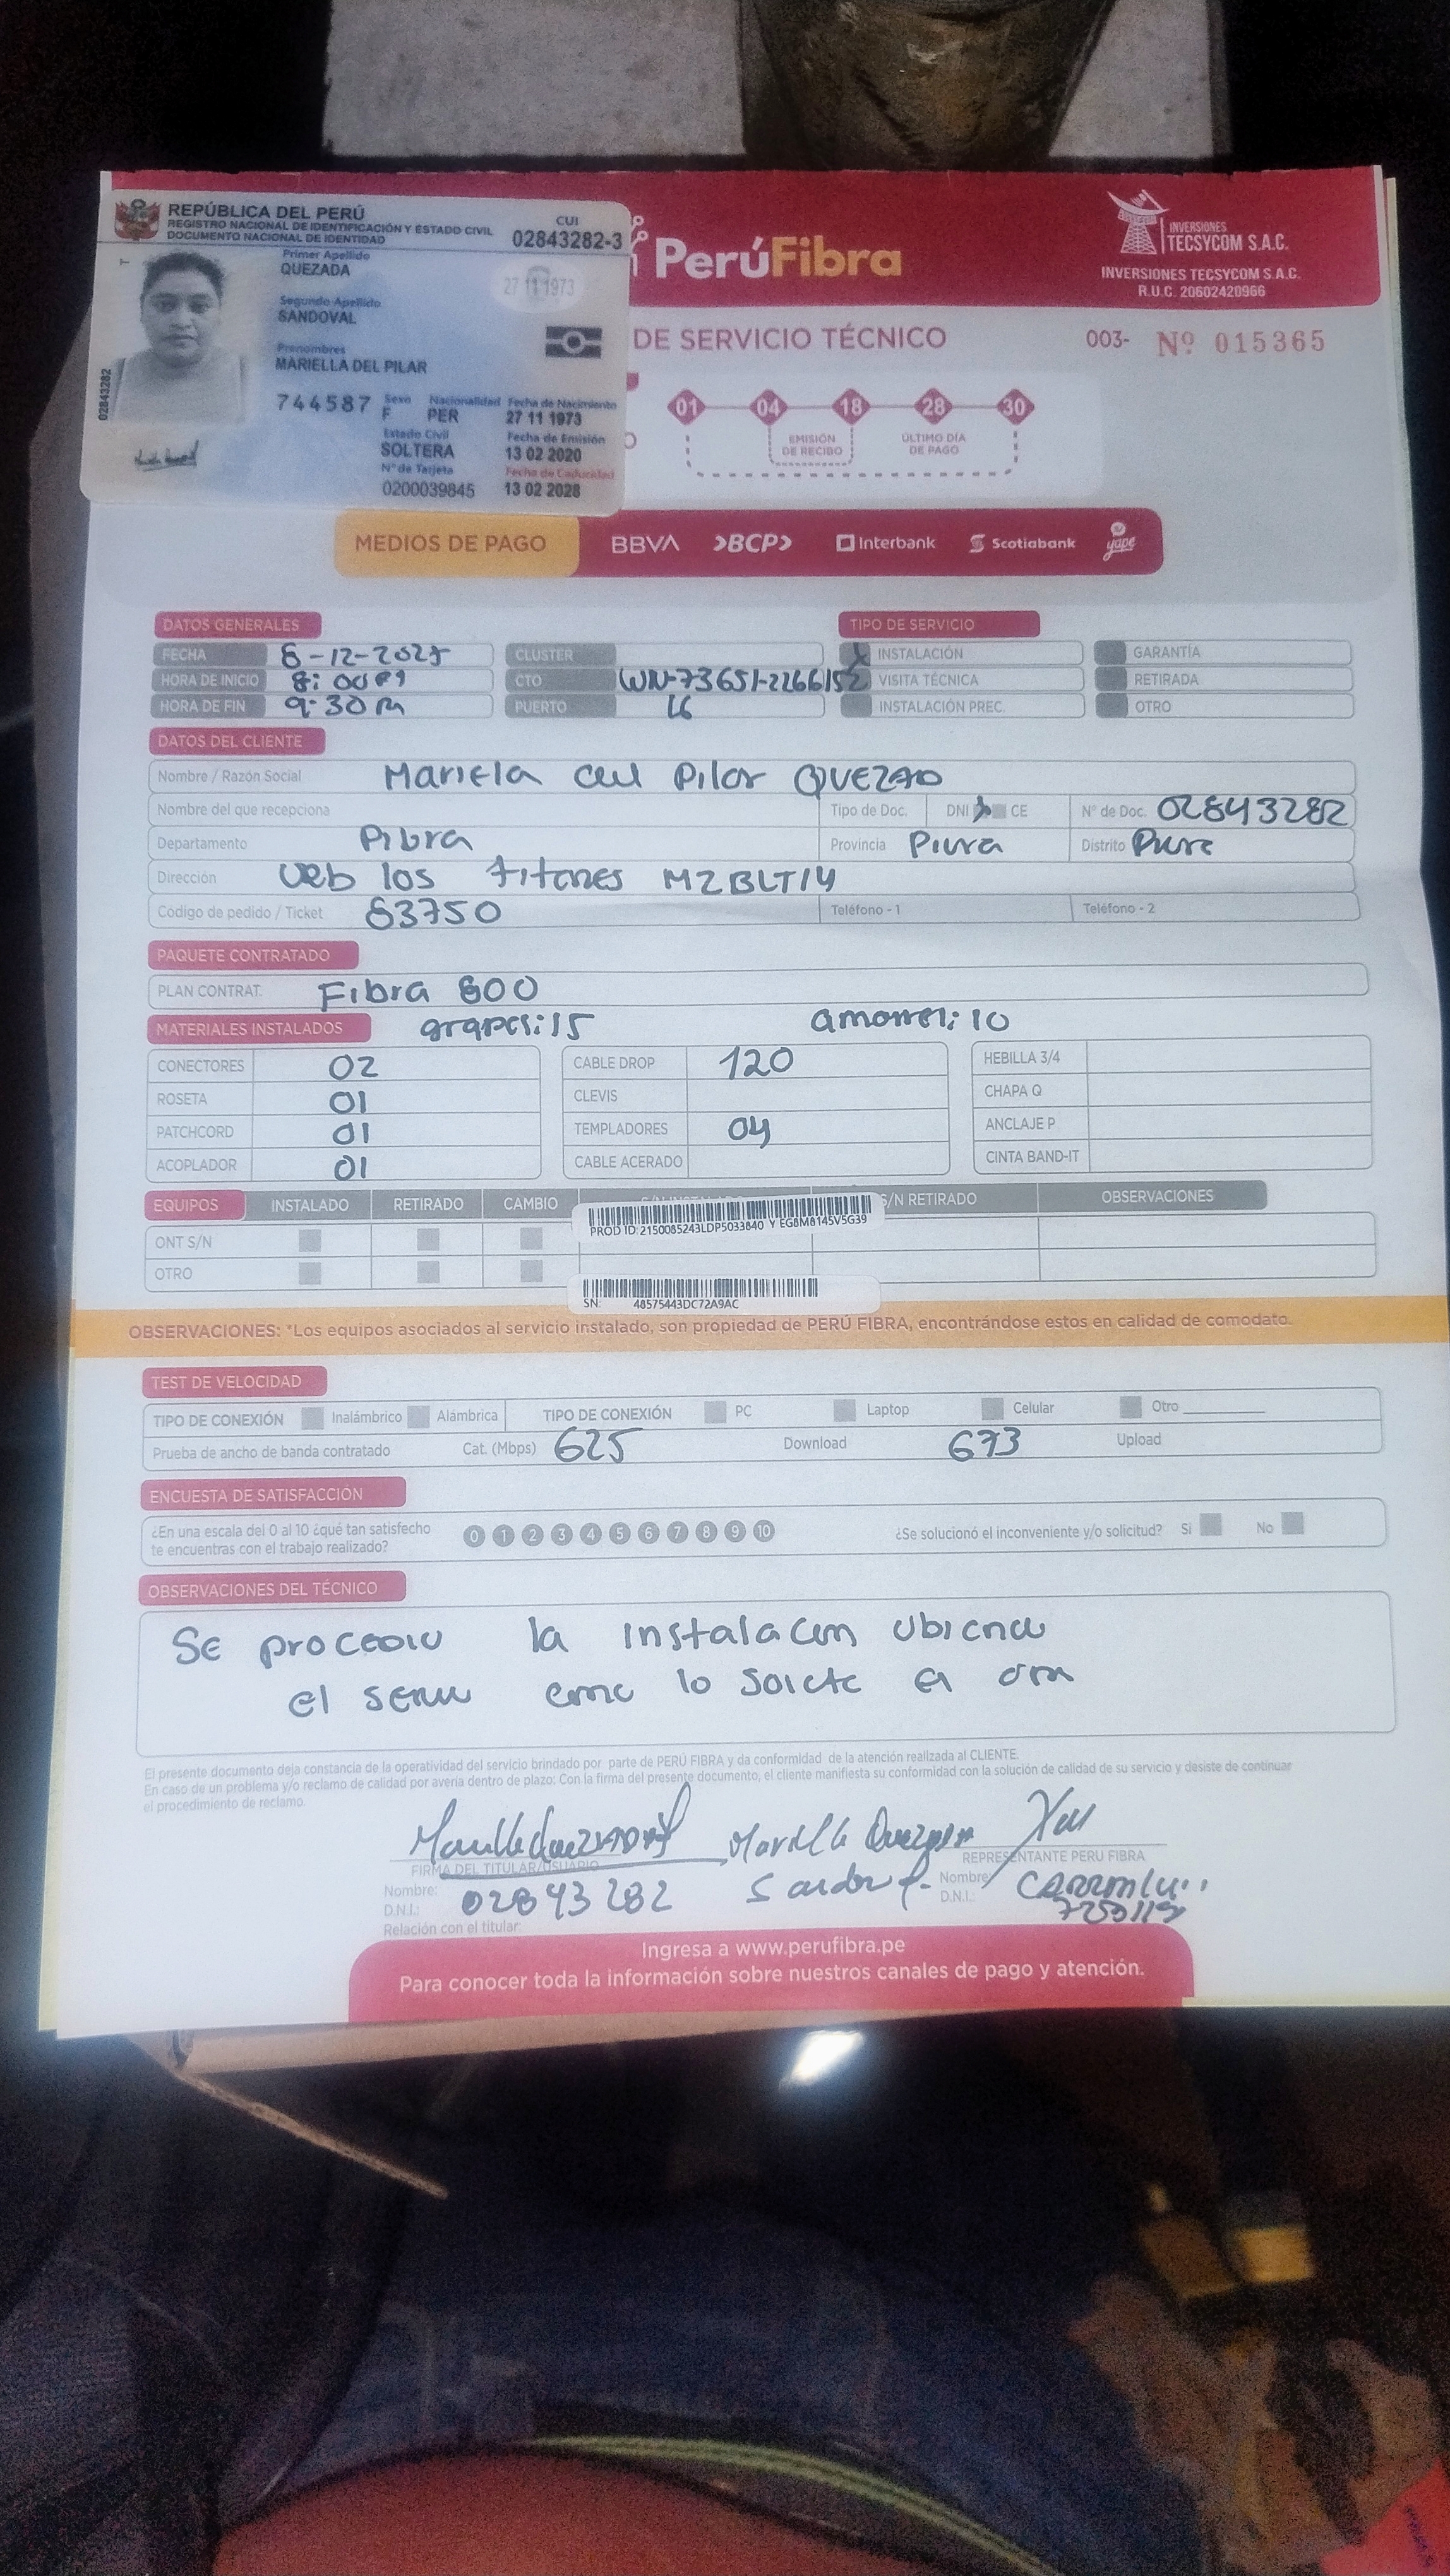 REPÚBLICA DEL PERÚ
REGISTRO NACIONAL DE IDENTIFICACIÓN Y ESTADO CIVIL
DOCUMENTO NACIONAL DE IDENTIDAD
CUI
02843282-3
Primer Apellido
QUEZADA
27 11 1973
Segundo Apellido
SANDOVAL
Prenombres
MARIELLA DEL PILAR
02843282
744587
Sexo Nacionalidad Fecha de Nacimiento
F PER 27 11 1973
Estado Civil Fecha de Emisión
SOLTERA 13 02 2020
N° de Tarjeta Fecha de Caducidad
0200039845 13 02 2028
PerúFibra
INVERSIONES
TECSYCOM S.A.C.
INVERSIONES TECSYCOM S.A.C.
R.U.C. 20602420966
DE SERVICIO TÉCNICO
003- Nº 015365
01 04 18 28 30
EMISIÓN DE RECIBO
ÚLTIMO DÍA DE PAGO
MEDIOS DE PAGO BBVA >BCP> Interbank Scotiabank yape
DATOS GENERALES TIPO DE SERVICIO
FECHA 6-12-2025 CLUSTER INSTALACIÓN GARANTÍA
HORA DE INICIO 8:00 CTO WN-73651-2266152 VISITA TÉCNICA RETIRADA
HORA DE FIN 9:30 PUERTO 16 INSTALACIÓN PREC. OTRO
DATOS DEL CLIENTE
Nombre / Razón Social Mariela del Pilar QUEZAD
Nombre del que recepciona Tipo de Doc. DNI CE N° de Doc. 02843282
Departamento Pibra Provincia Piura Distrito
Dirección los titanes MZBLT14
Código de pedido / Ticket 63750 Teléfono - 1 Teléfono - 2
PAQUETE CONTRATADO
PLAN CONTRAT. Fibra 600
MATERIALES INSTALADOS :15 :10
CONECTORES 02 CABLE DROP 120 HEBILLA 3/4
ROSETA 01 CLEVIS CHAPA Q
PATCHCORD 01 TEMPLADORES 04 ANCLAJE P
ACOPLADOR 01 CABLE ACERADO CINTA BAND-IT
EQUIPOS INSTALADO RETIRADO CAMBIO S/N RETIRADO OBSERVACIONES
PROD ID:2150085243LDP5033840 Y EG8M8145V5G39
ONT S/N
OTRO
SN: 48575443DC72A9AC
OBSERVACIONES: *Los equipos asociados al servicio instalado, son propiedad de PERÚ FIBRA, encontrándose estos en calidad de comodato.
TEST DE VELOCIDAD
TIPO DE CONEXIÓN Inalámbrico Alámbrica TIPO DE CONEXIÓN PC Laptop Celular Otro
Prueba de ancho de banda contratado Cat. (Mbps) 625 Download 673 Upload
ENCUESTA DE SATISFACCIÓN
¿En una escala del 0 al 10 ¿qué tan satisfecho
te encuentras con el trabajo realizado?
0 1 2 3 4 5 6 7 8 9 10
¿Se solucionó el inconveniente y/o solicitud? Si No
OBSERVACIONES DEL TÉCNICO
Se procedio la
el lo
El presente documento deja constancia de la operatividad del servicio brindado por parte de PERÚ FIBRA y da conformidad de la atención realizada al CLIENTE.
En caso de un problema y/o reclamo de calidad por avería dentro de plazo: Con la firma del presente documento, el cliente manifiesta su conformidad con la solución de calidad de su servicio y desiste de continuar
el procedimiento de reclamo.
FIRMA DEL TITULAR/USUARIO REPRESENTANTE PERU FIBRA
Nombre: Nombre:
D.N.I.: 02843282 D.N.I.:
Relación con el titular:
Ingresa a www.perufibra.pe
Para conocer toda la información sobre nuestros canales de pago y atención.